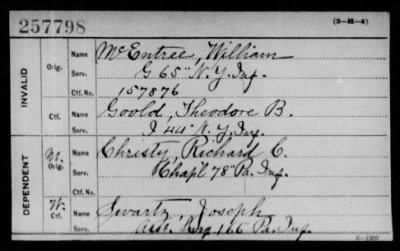 257798
(3-H-4)
INVALID
Orig.
Name McEntree, William
Serv. G 65" N.Y. Inf.
Ctf. No. 157876
Ctf.
Name Goold, Theodore B.
Serv. I 44" N.Y. Inf.
DEPENDENT
M. Orig.
Name Christy, Richard C.
Serv. Chap'l 78" Pa. Inf.
W. Ctf.
Name Swartz, Joseph
Serv. Asst. Surg. 166 Pa. Inf.